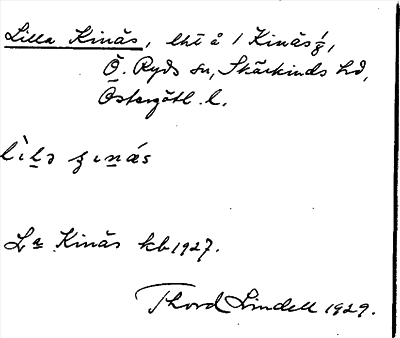 Lilla Kinäs, lht å 1 Kinäs 1/8,
Ö. Ryds sn, Skärkinds hd,
Östergötl. l.
lìlə ʂɩnǽs
La Kinäs kb 1927.
Thord Lindell 1929.